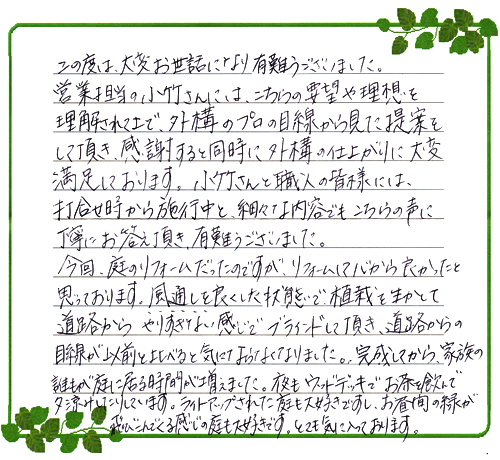 この度は、大変お世話になり有難うございました。
営業担当の小竹さんには、こちらの要望や理想を
理解された上で、外構のプロの目線から見た提案を
して頂き、感謝すると同時に外構の仕上がりに大変
満足しております。小竹さんと職人の皆様には、
打合せ時から施行中と、細々な内容でもこちらの声に
丁寧にお答え頂き、有難うございました。
今回、庭のリフォームだったのですが、リフォームして心から良かったと
思っております。風通しを良くした状態で植栽を生かして
道路から やりすぎない感じでブラインドして頂き、道路からの
目線が以前と比べると気にならなくなりました。完成してから、家族の
誰もが庭に居る時間が増えました。夜もウッドデッキでお茶を飲んで
夕涼みしたりしています。ライトアップされた庭も大好きですし、お昼間の緑が
飛びこんでくる感じの庭も大好きです。とても気に入っております。